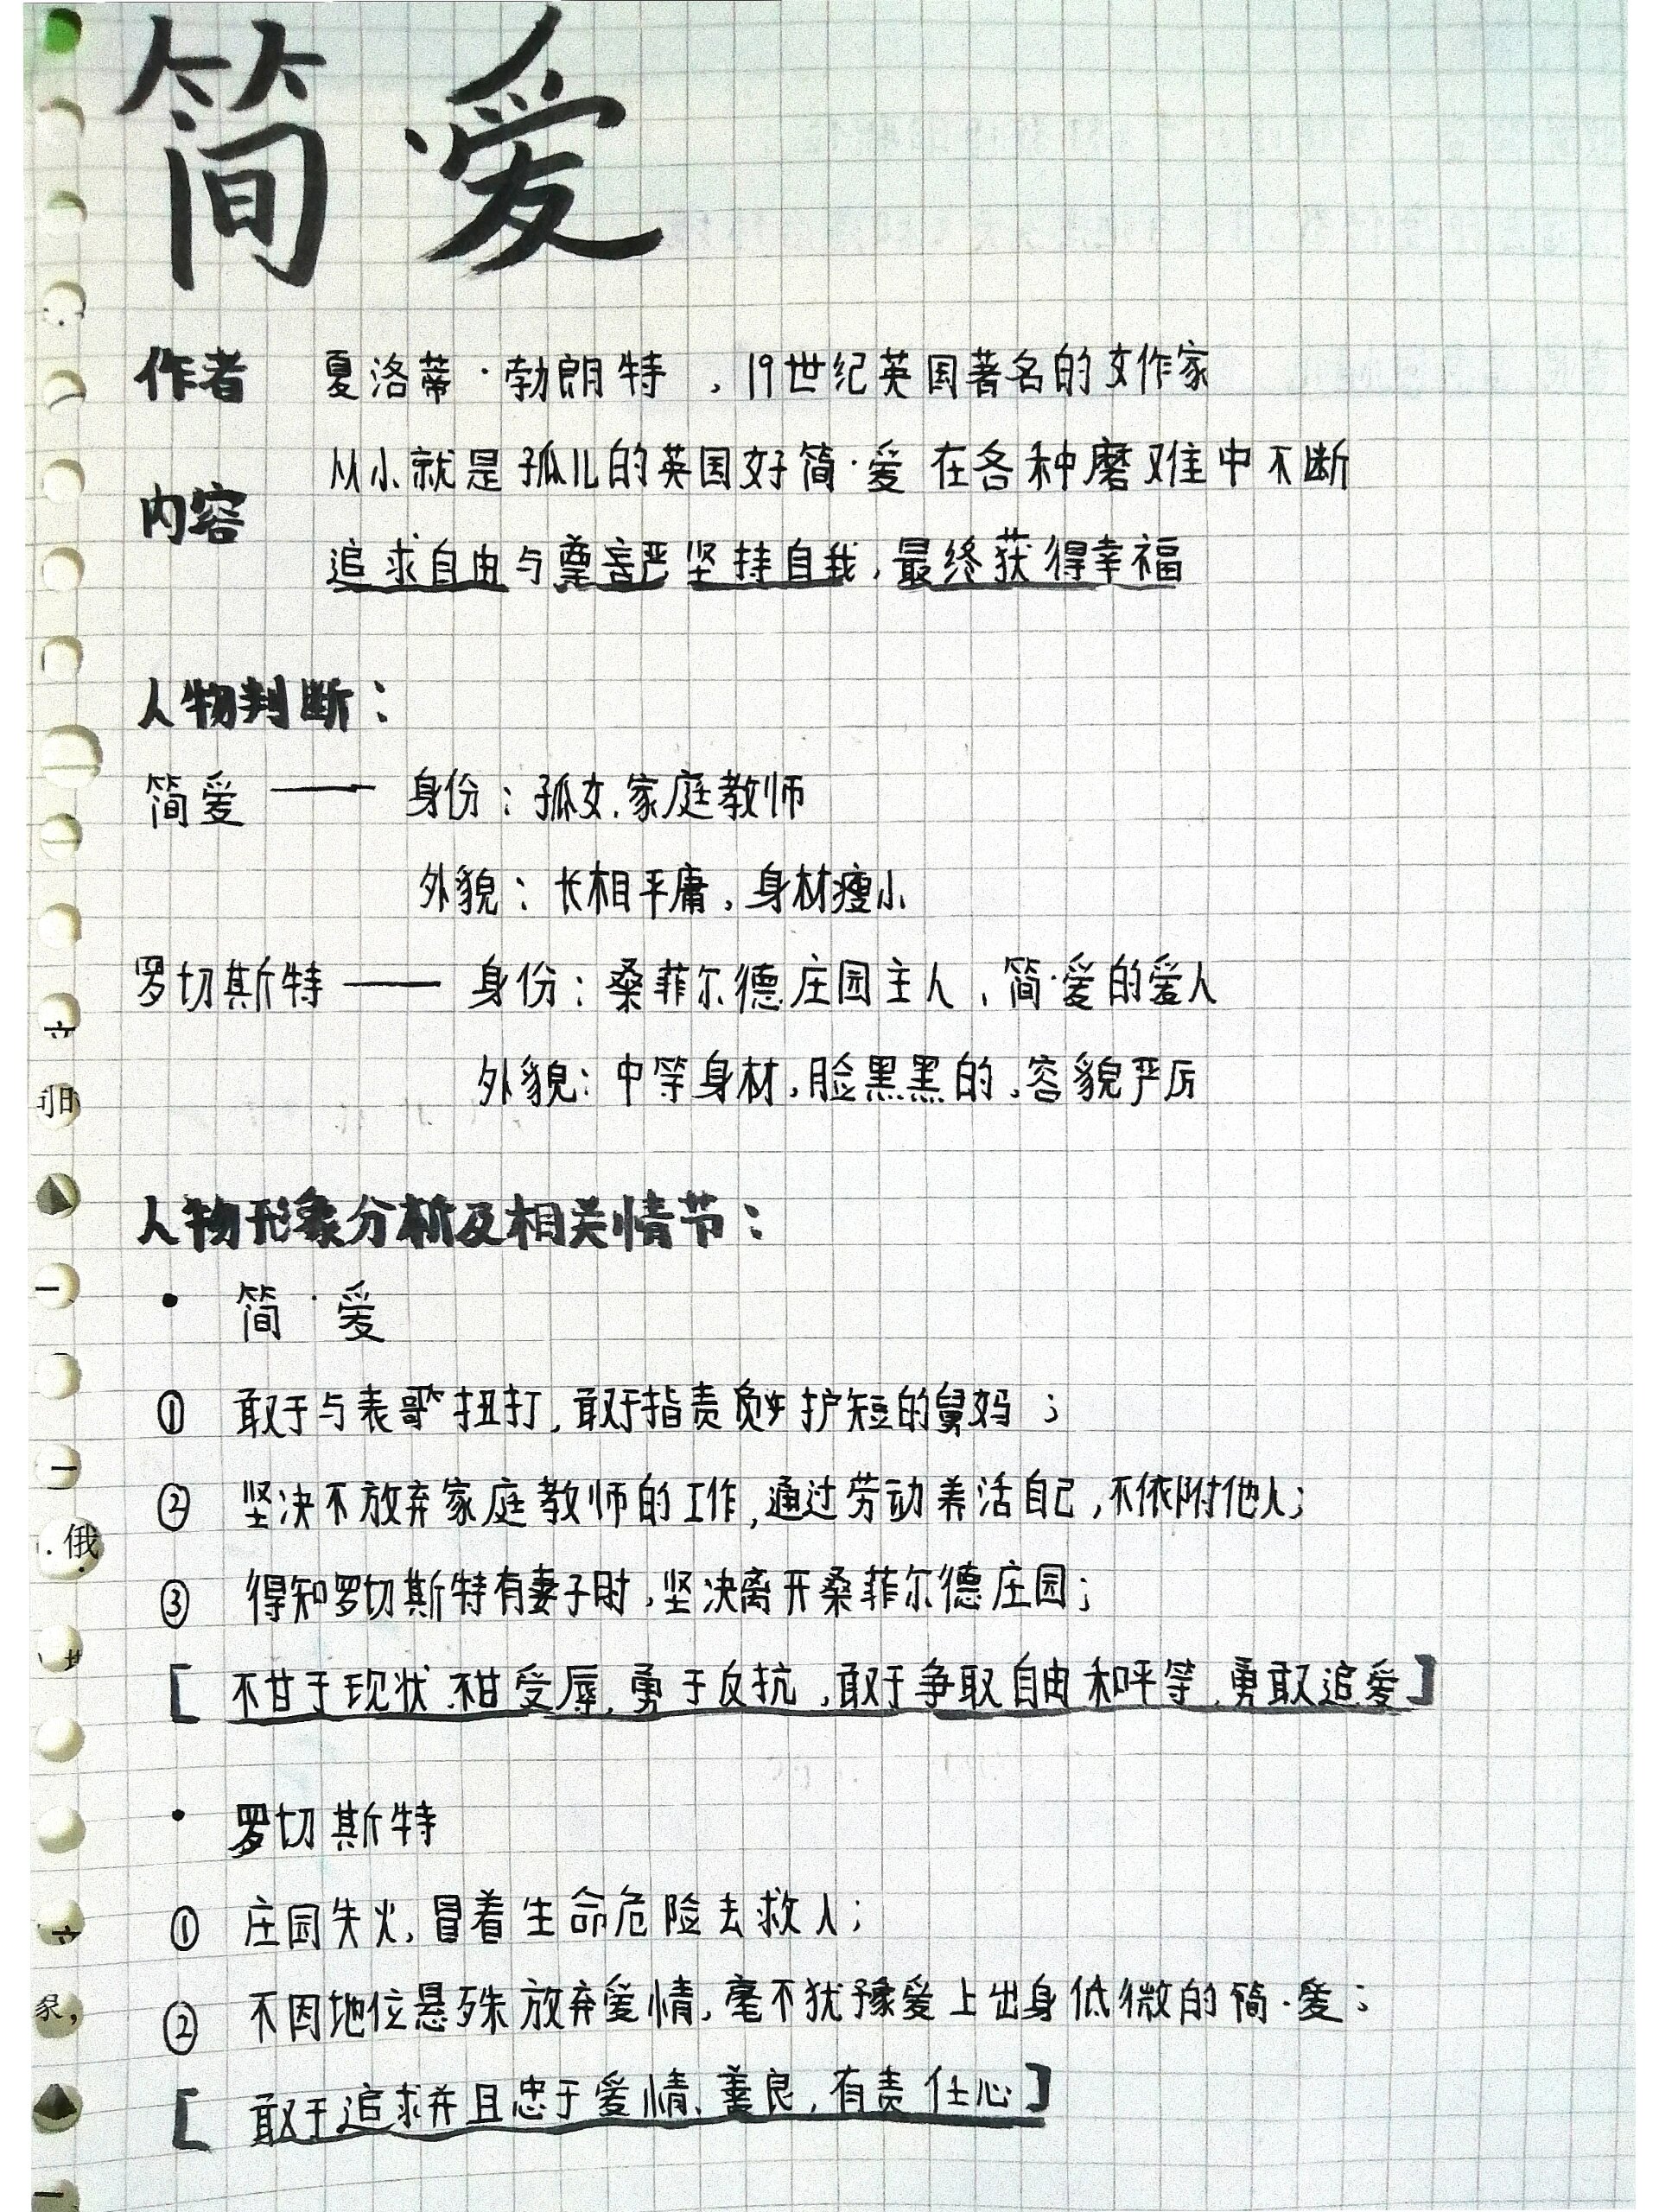 简爱
作者 夏洛蒂·勃朗特，19世纪英国著名的女作家
从小就是孤儿的英国女子简·爱 在各种磨难中不断
内容
追求自由与尊严 坚持自我，最终获得幸福
人物判断：
简爱 —— 身份：孤女、家庭教师
外貌：长相平庸，身材瘦小
罗切斯特 —— 身份：桑菲尔德庄园主人、简·爱的爱人
外貌：中等身材，脸黑黑的，容貌严厉
人物形象分析及相关情节：
• 简·爱
① 敢于与表哥扭打，敢于指责 护短的舅妈；
② 坚决不放弃家庭教师的工作，通过劳动养活自己，不依附他人；
③ 得知罗切斯特有妻子时，坚决离开桑菲尔德庄园；
[不甘于现状 不甘受辱，勇于反抗，敢于争取自由和平等，勇敢追爱]
• 罗切斯特
① 庄园失火，冒着生命危险去救人；
② 不因地位悬殊放弃爱情，毫不犹豫爱上出身低微的简·爱；
[敢于追求并且忠于爱情、善良，有责任心]
俄
象，